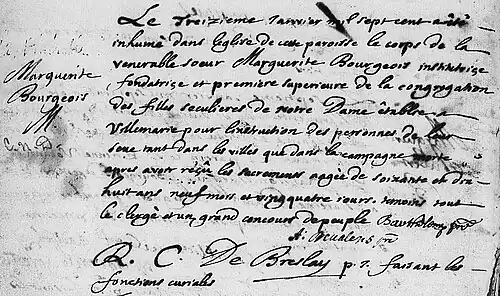 Le Treizieme Janvier mil sept cent a été
inhumé dans leglise de cette paroisse le corps de la
venerable soeur Marguerite Bourgeois institutrice
fondatrice et premiere superieure de la congregation
des filles seculieres de Notre Dame établie a
Villemarie pour linstruction des personnes de leur
sexe tant dans les villes que dans la campagne morte
apres avoir reçu les sacrements agée de soixante et dix
huit ans neuf mois et vingt quatre jours. temoins tout
le clergé et un grand concours de peuple
R. C. De Breslay p. faisant les
fonctions curiales
Marguerite
Bourgeois
C. N. D.